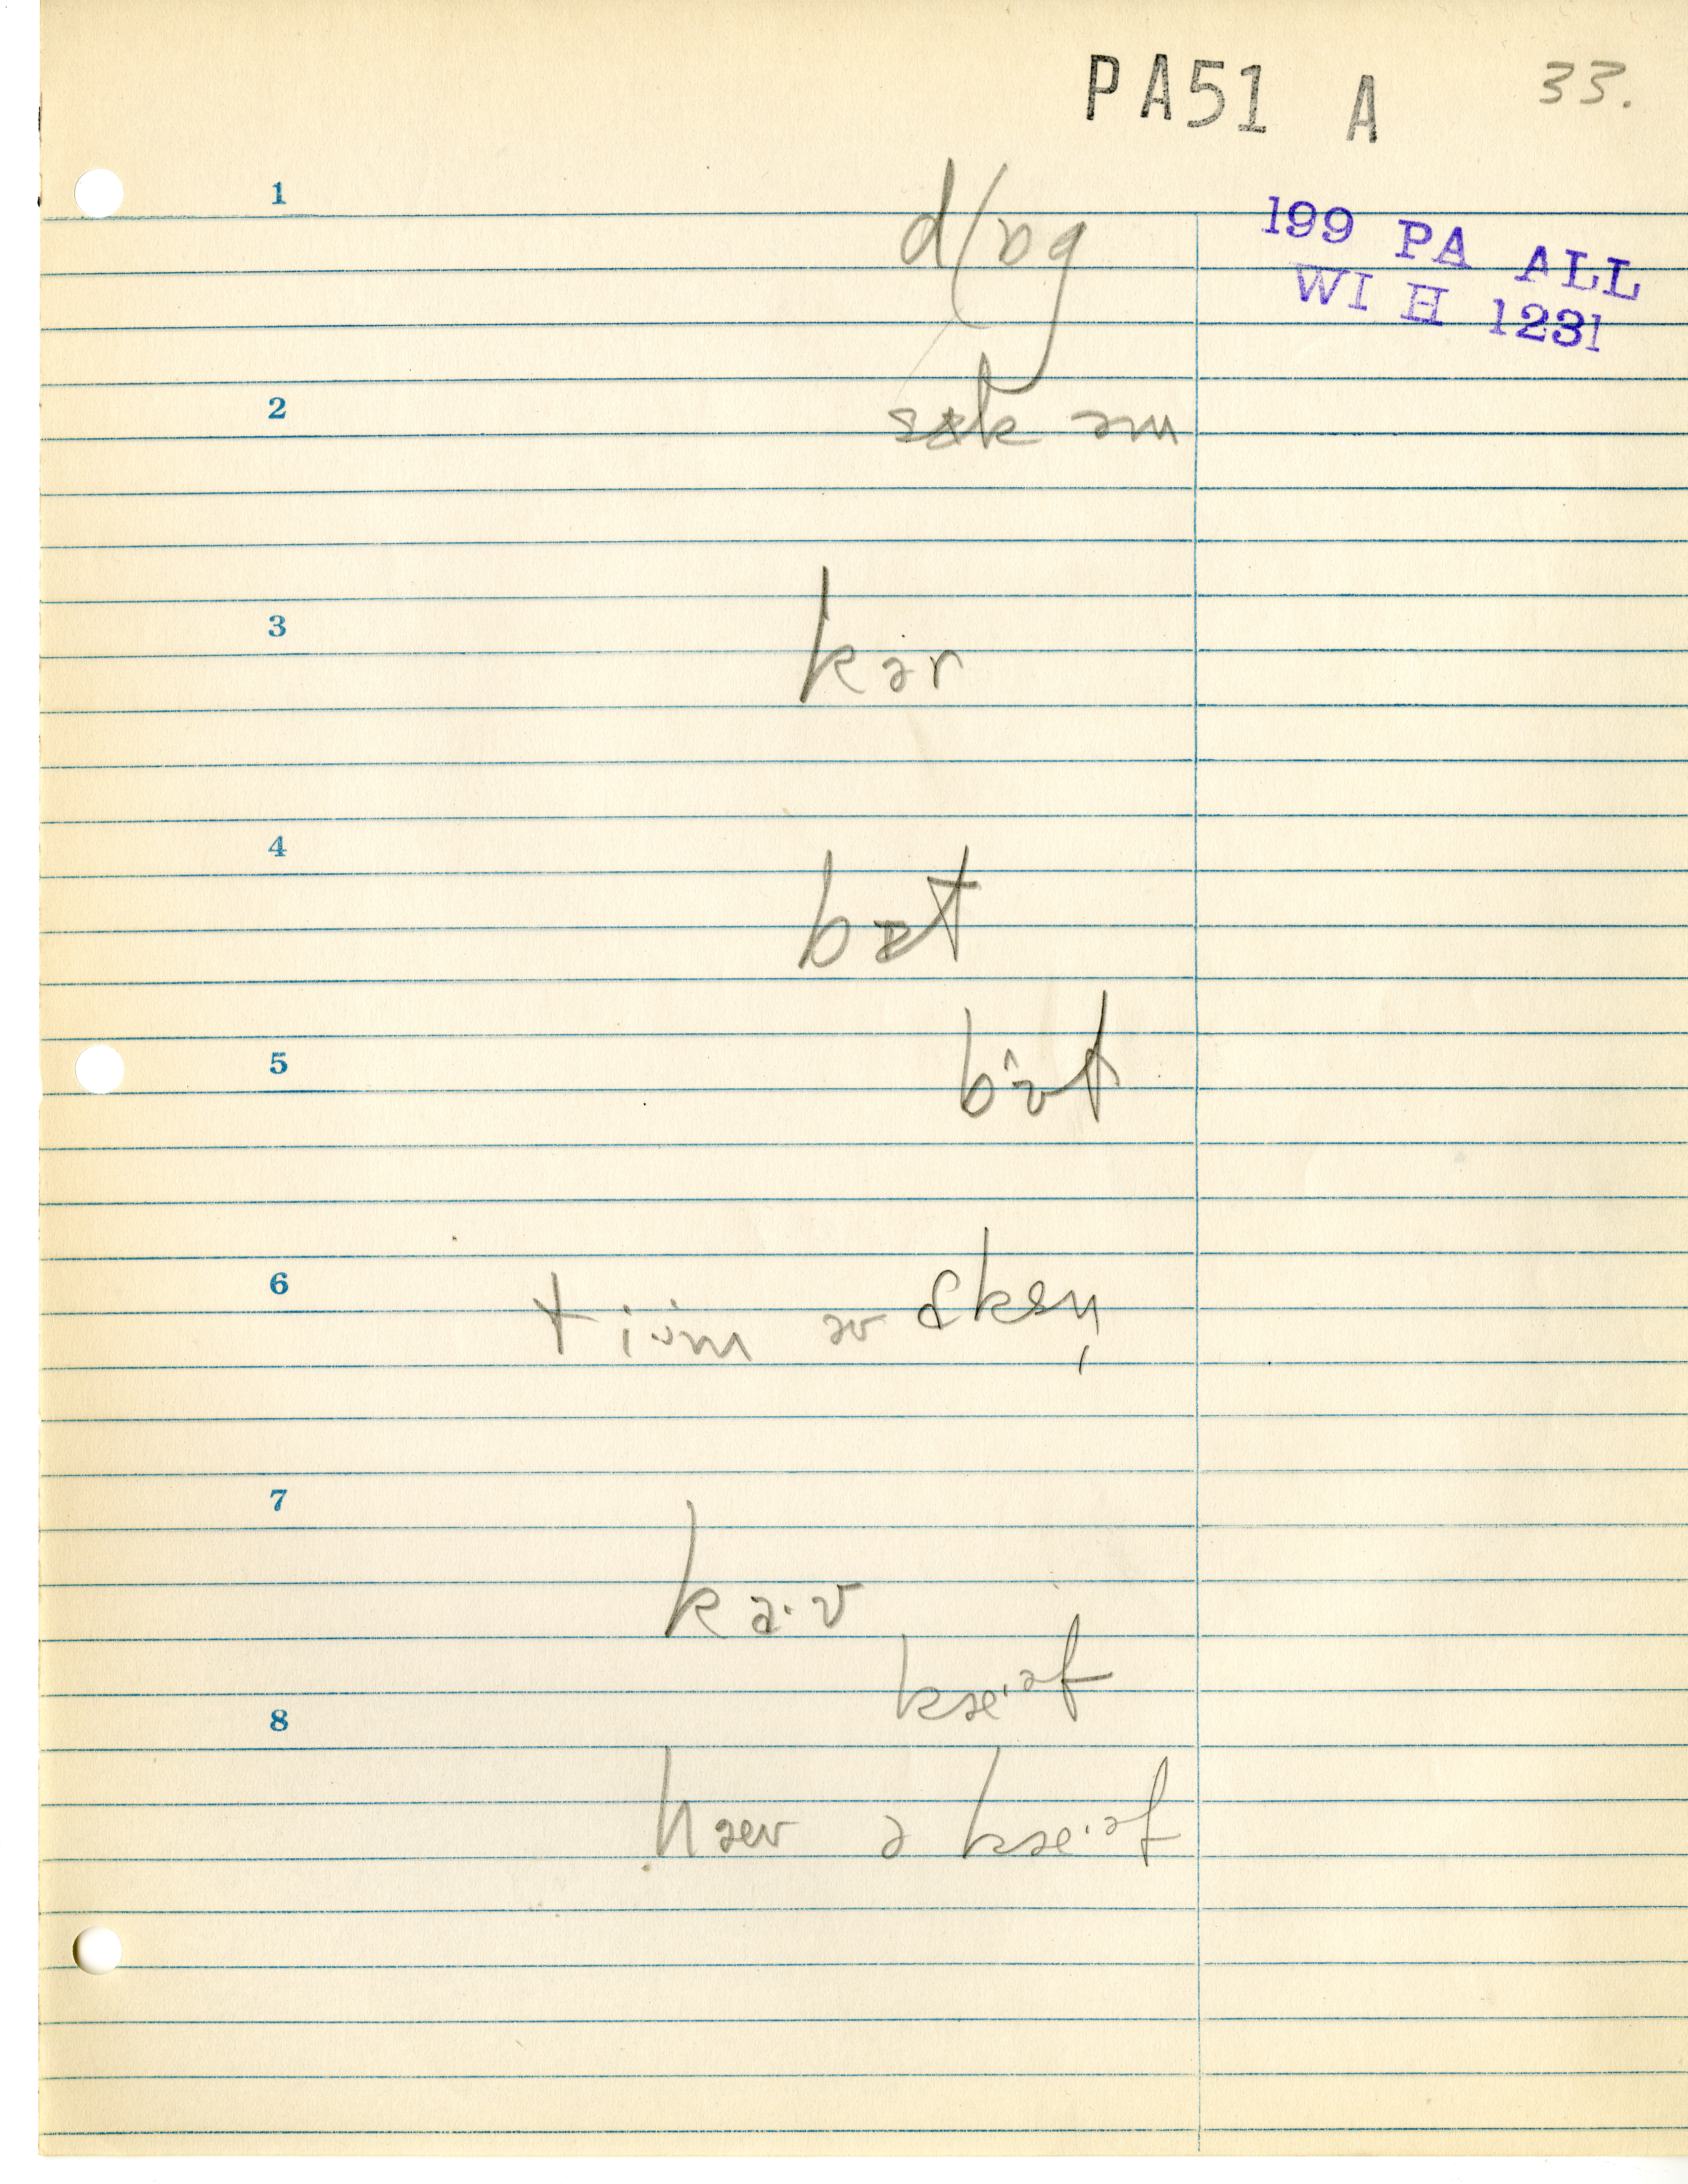 PA51 A 33.
1
199 PA ALL
WI H 1231
d/ɒg
2
sɪk əm
3
kər
4
bɒt
5
bɒ̂t
6
tiüm əv ɒksn̩
7
ka·v
kæ·əf
8
hæv ə kæ·əf